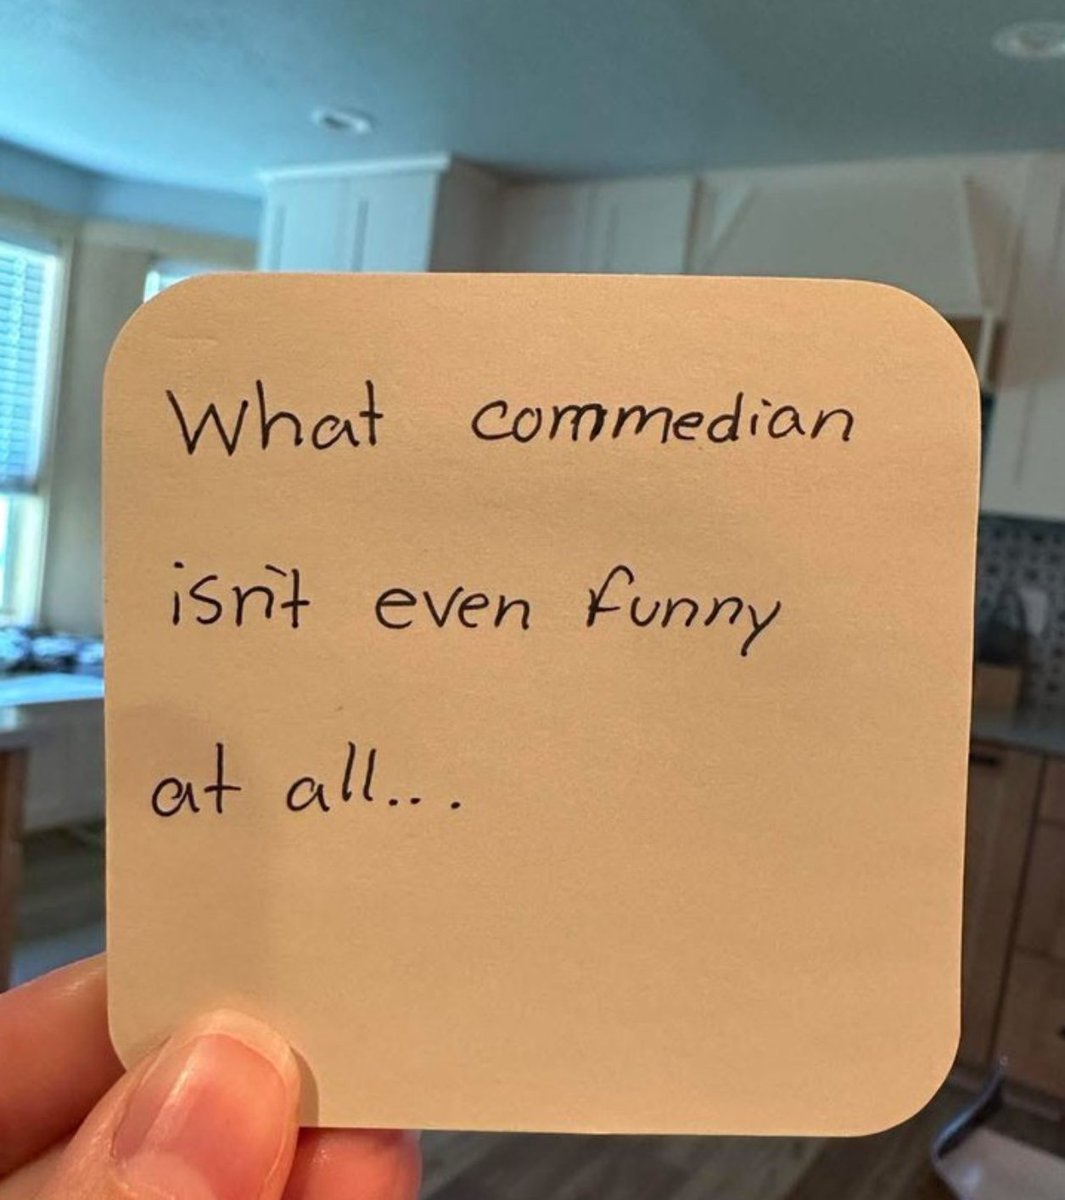 What commedian
isn't even funny
at all...